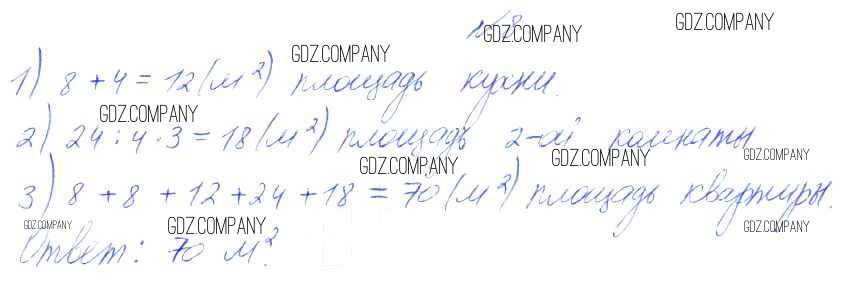 №8
GDZ.COMPANY GDZ.COMPANY GDZ.COMPANY
1) 8 + 4 = 12 (м²) площадь кухни.
GDZ.COMPANY
2) 24 : 4 · 3 = 18 (м²) площадь 2-ой комнаты
GDZ.COMPANY GDZ.COMPANY GDZ.COMPANY
3) 8 + 8 + 12 + 24 + 18 = 70 (м²) площадь квартиры.
GDZ.COMPANY GDZ.COMPANY GDZ.COMPANY
Ответ: 70 м².